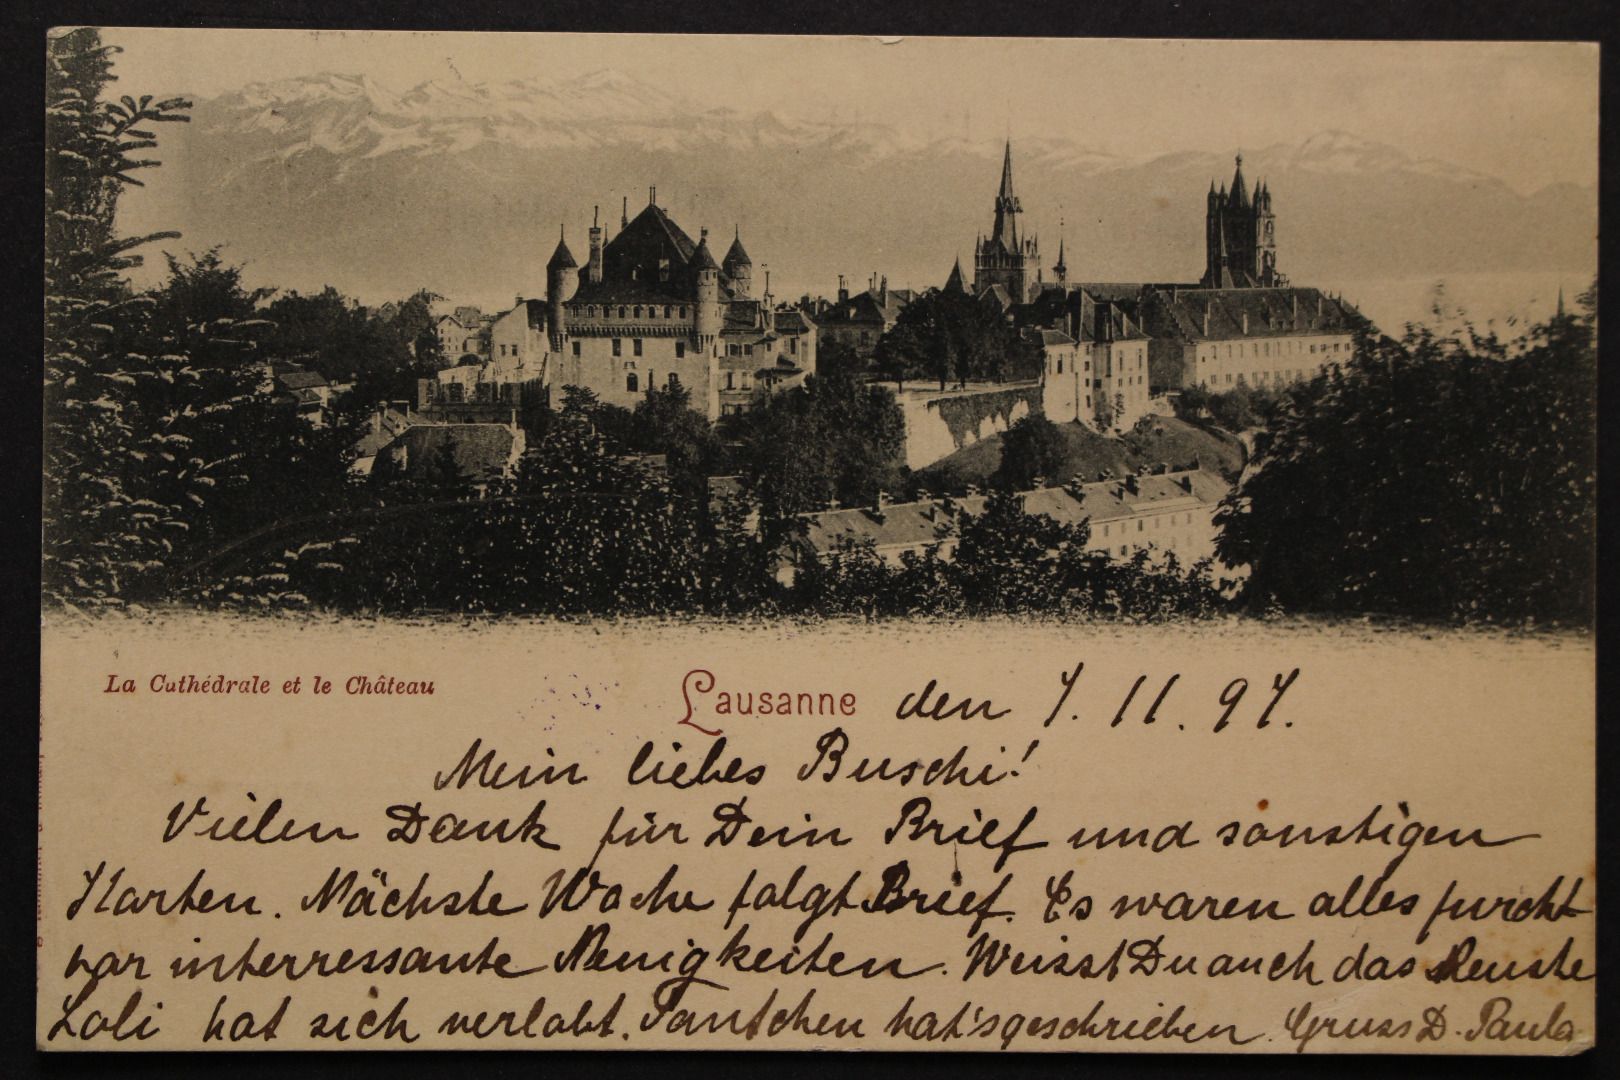 La Cathédrale et le Château
Lausanne den 7. 11. 97.
Mein liebes Buschi!
Vielen Dank für Dein Brief und sonstigen
Karten. Nächste Woche folgt Brief. Es waren alles furcht
bar interressante Neuigkeiten. Weisst Du auch das Neuste
Loli hat sich verlobt. Tantchen hat's geschrieben. Gruss D. Paula